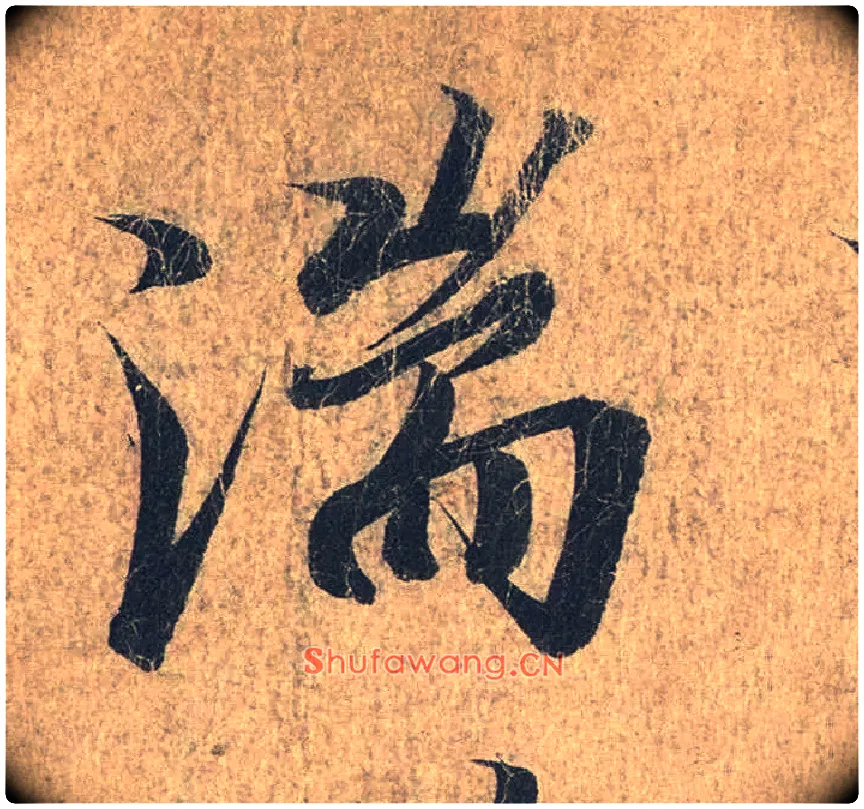 湍
Shufawang.CN